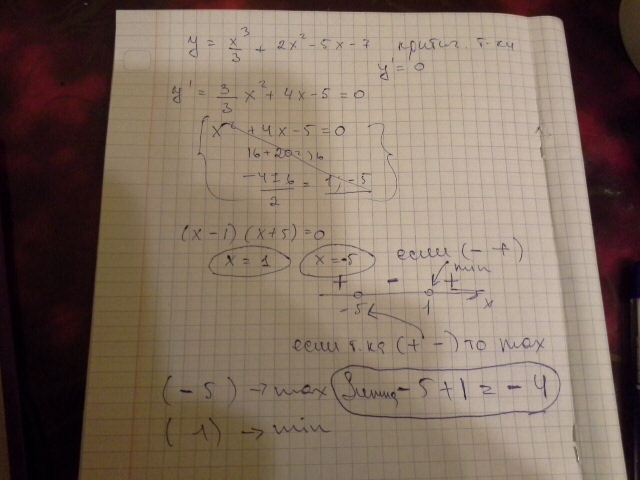 y = x³/3 + 2x² - 5x - 7 критич. т-ки
y' = 0
y' = 3/3 x² + 4x - 5 = 0
x² + 4x - 5 = 0
16 + 20 = 36
(-4 ± 6)/2 = 1; -5
(x - 1)(x + 5) = 0
x = 1 x = -5 если (- +)
min
+ - +
-5 1 x
если т.ка (+ -) то max
(-5) → max -5 + 1 = -4
(1) → min